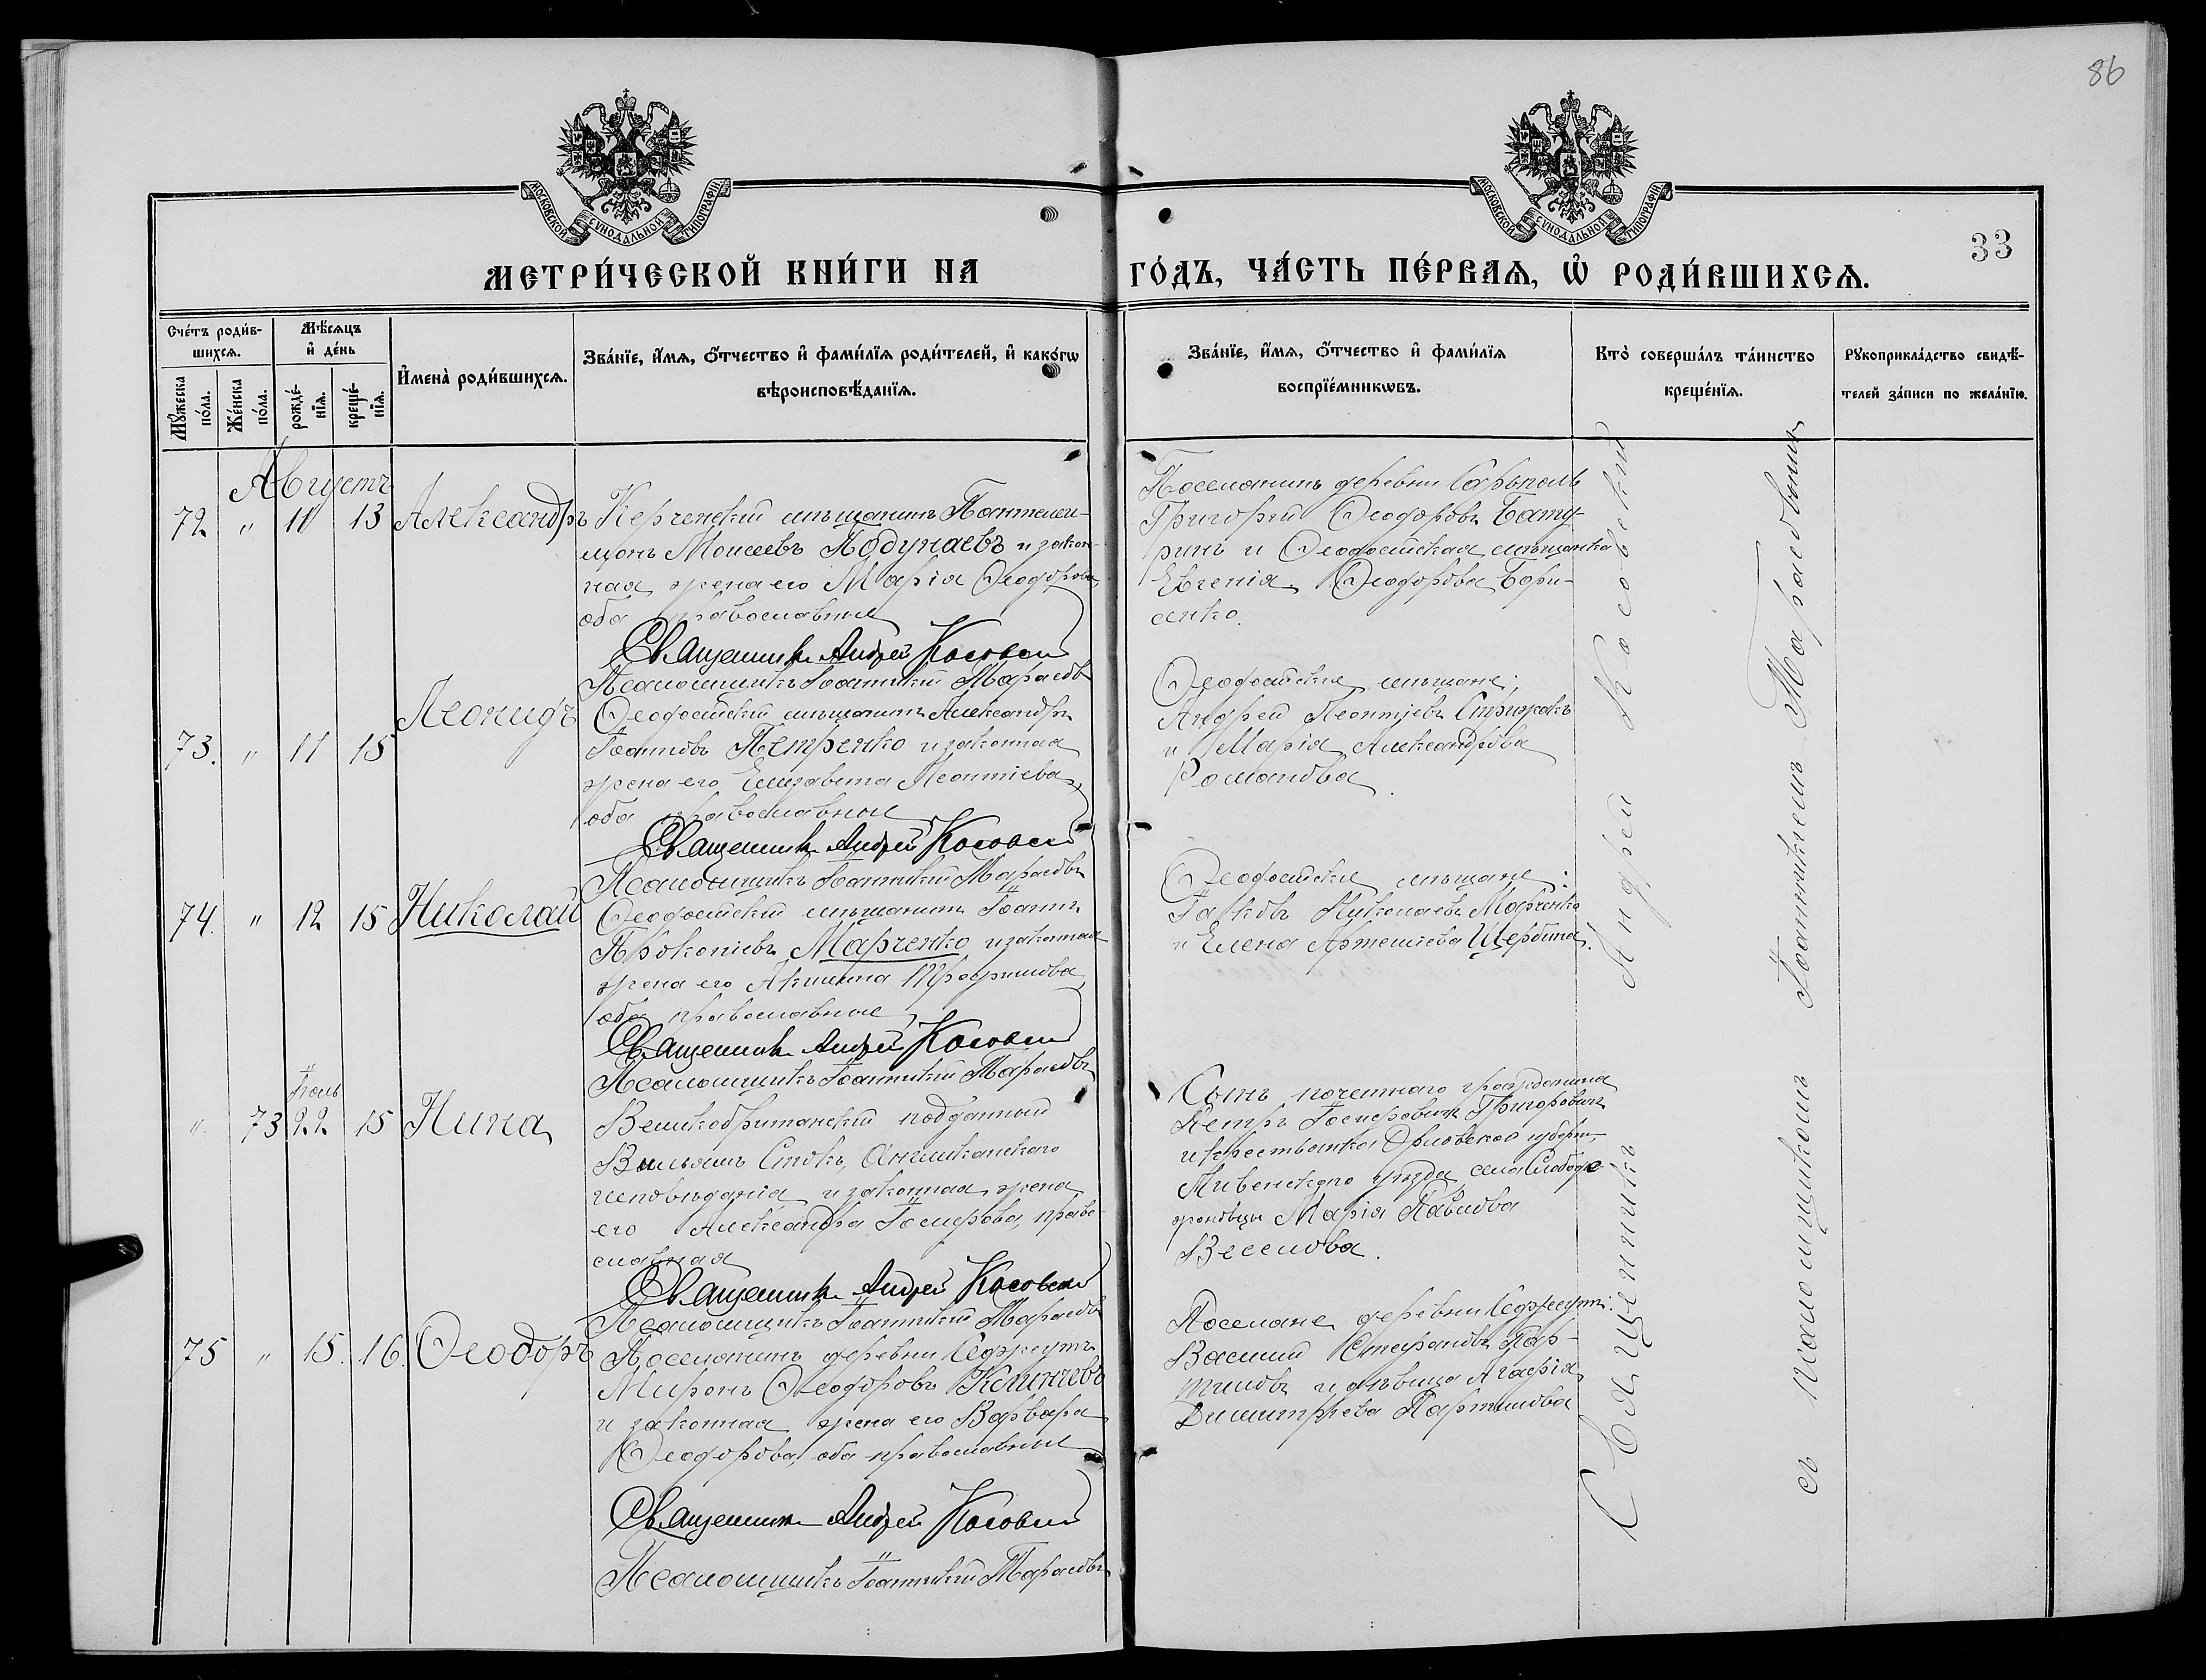 86
МОСКОВСКОЙ СѴНОДАЛЬНОЙ ТИПОГРАФІИ
МОСКОВСКОЙ СѴНОДАЛЬНОЙ ТИПОГРАФІИ
33
МЕТРИ́ЧЕСКОЙ КНИ́ГИ НА
ГО́ДЪ, ЧА́СТЬ ПЕ́РВАѦ, Ѽ РОДИ́ВШИХСѦ.
Сче́тъ роди́в-
шихсѧ.
Мꙋ́жеска по́ла.
Же́нска по́ла.
Мѣ́сѧцъ
и҆ де́нь
рожде́-
нїѧ.
креще́-
нїѧ.
И҆мена̀ роди́вшихсѧ.
Зва́нїе, и҆́мѧ, ѻ҆́тчество и҆ фами́лїѧ роди́телей, и҆ како́гѡ
вѣроисповѣ́данїѧ.
Зва́нїе, и҆́мѧ, ѻ҆́тчество и҆ фами́лїѧ
воспрїе́мникѡвъ.
Кто̀ соверша́лъ та́инство
креще́нїѧ.
Рꙋкоприкла́дство свидѣ́-
телей за́писи по жела́нїю.
Августъ
72 " 11 13 Александръ
Керченскій мѣщанинъ Пантелеи-
монъ Моисеевъ Подунаевъ и закон-
ная жена его Марія Ѳеодорова
оба православные
Священникъ Андрей Косовскій
Псаломщикъ Іоанникій Тарасовъ
Поселянинъ деревни Сарыголь
Григорій Ѳеодоровъ Бату-
ринъ и Ѳеодосійская мѣщанка
Евгенія Ѳеодорова Бори-
сенко.
73. " 11 15 Леонидъ
Ѳеодосійскій мѣщанинъ Александръ
Іоанновъ Петренко и законная
жена его Елисавета Леонтіева,
оба православные
Священникъ Андрей Косовскій
Псаломщикъ Іоанникій Тарасовъ
Ѳеодосійскіе мѣщане:
Андрей Леонтіевъ Стрижакъ
и Марія Александрова
Романова.
74. " 12 15 Николай
Ѳеодосійскій мѣщанинъ Іоаннъ
Прокопіевъ Марченко и законная
жена его Акилина Трофимова
оба православные
Священникъ Андрей Косовскій
Псаломщикъ Іоанникій Тарасовъ
Ѳеодосійскіе мѣщане:
Іаковъ Николаевъ Марченко
и Елена Артеміева Щербина.
Іюль
" 73 22 15 Нина
Великобританскій подданный
Вильямъ Стокъ, Англиканскаго
исповѣданія и законная жена
его Александра Іосифова, право-
славная
Священникъ Андрей Косовскій
Псаломщикъ Іоанникій Тарасовъ
Сынъ почетнаго гражданина
Петръ Іосифовичъ Григоровичъ
и крестьянка Орловской губерн.,
Ливенскаго уѣзда, села
Марія Павлова
Веселова.
75 " 15. 16. Ѳеодоръ
Поселянинъ деревни Седжеутъ
Миронъ Ѳеодоровъ
и законная жена его Варвара
Ѳеодорова, оба православные
Священникъ Андрей Косовскій
Псаломщикъ Іоанникій Тарасовъ
Поселяне деревни Седжеутъ:
Василій Стефановъ Пар-
тиловъ и дѣвица Агафія
Димитріева Партилова
Священникъ Андрей Косовскій
съ псаломщикомъ Іоанникіемъ Тарасовымъ